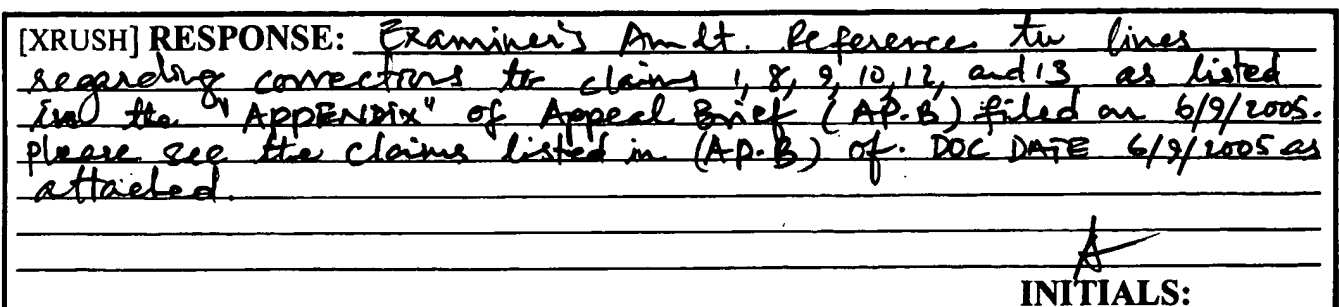 [XRUSH] RESPONSE: Examiner's Amdt. References to lines
regarding corrections to claims 1, 8, 9, 10, 12, and 13 as listed
in the "APPENDIX" of Appeal Brief (AP.B) filed on 6/9/2005.
please see the claims listed in (AP.B) of DOC DATE 6/9/2005 as
attached.
INITIALS: